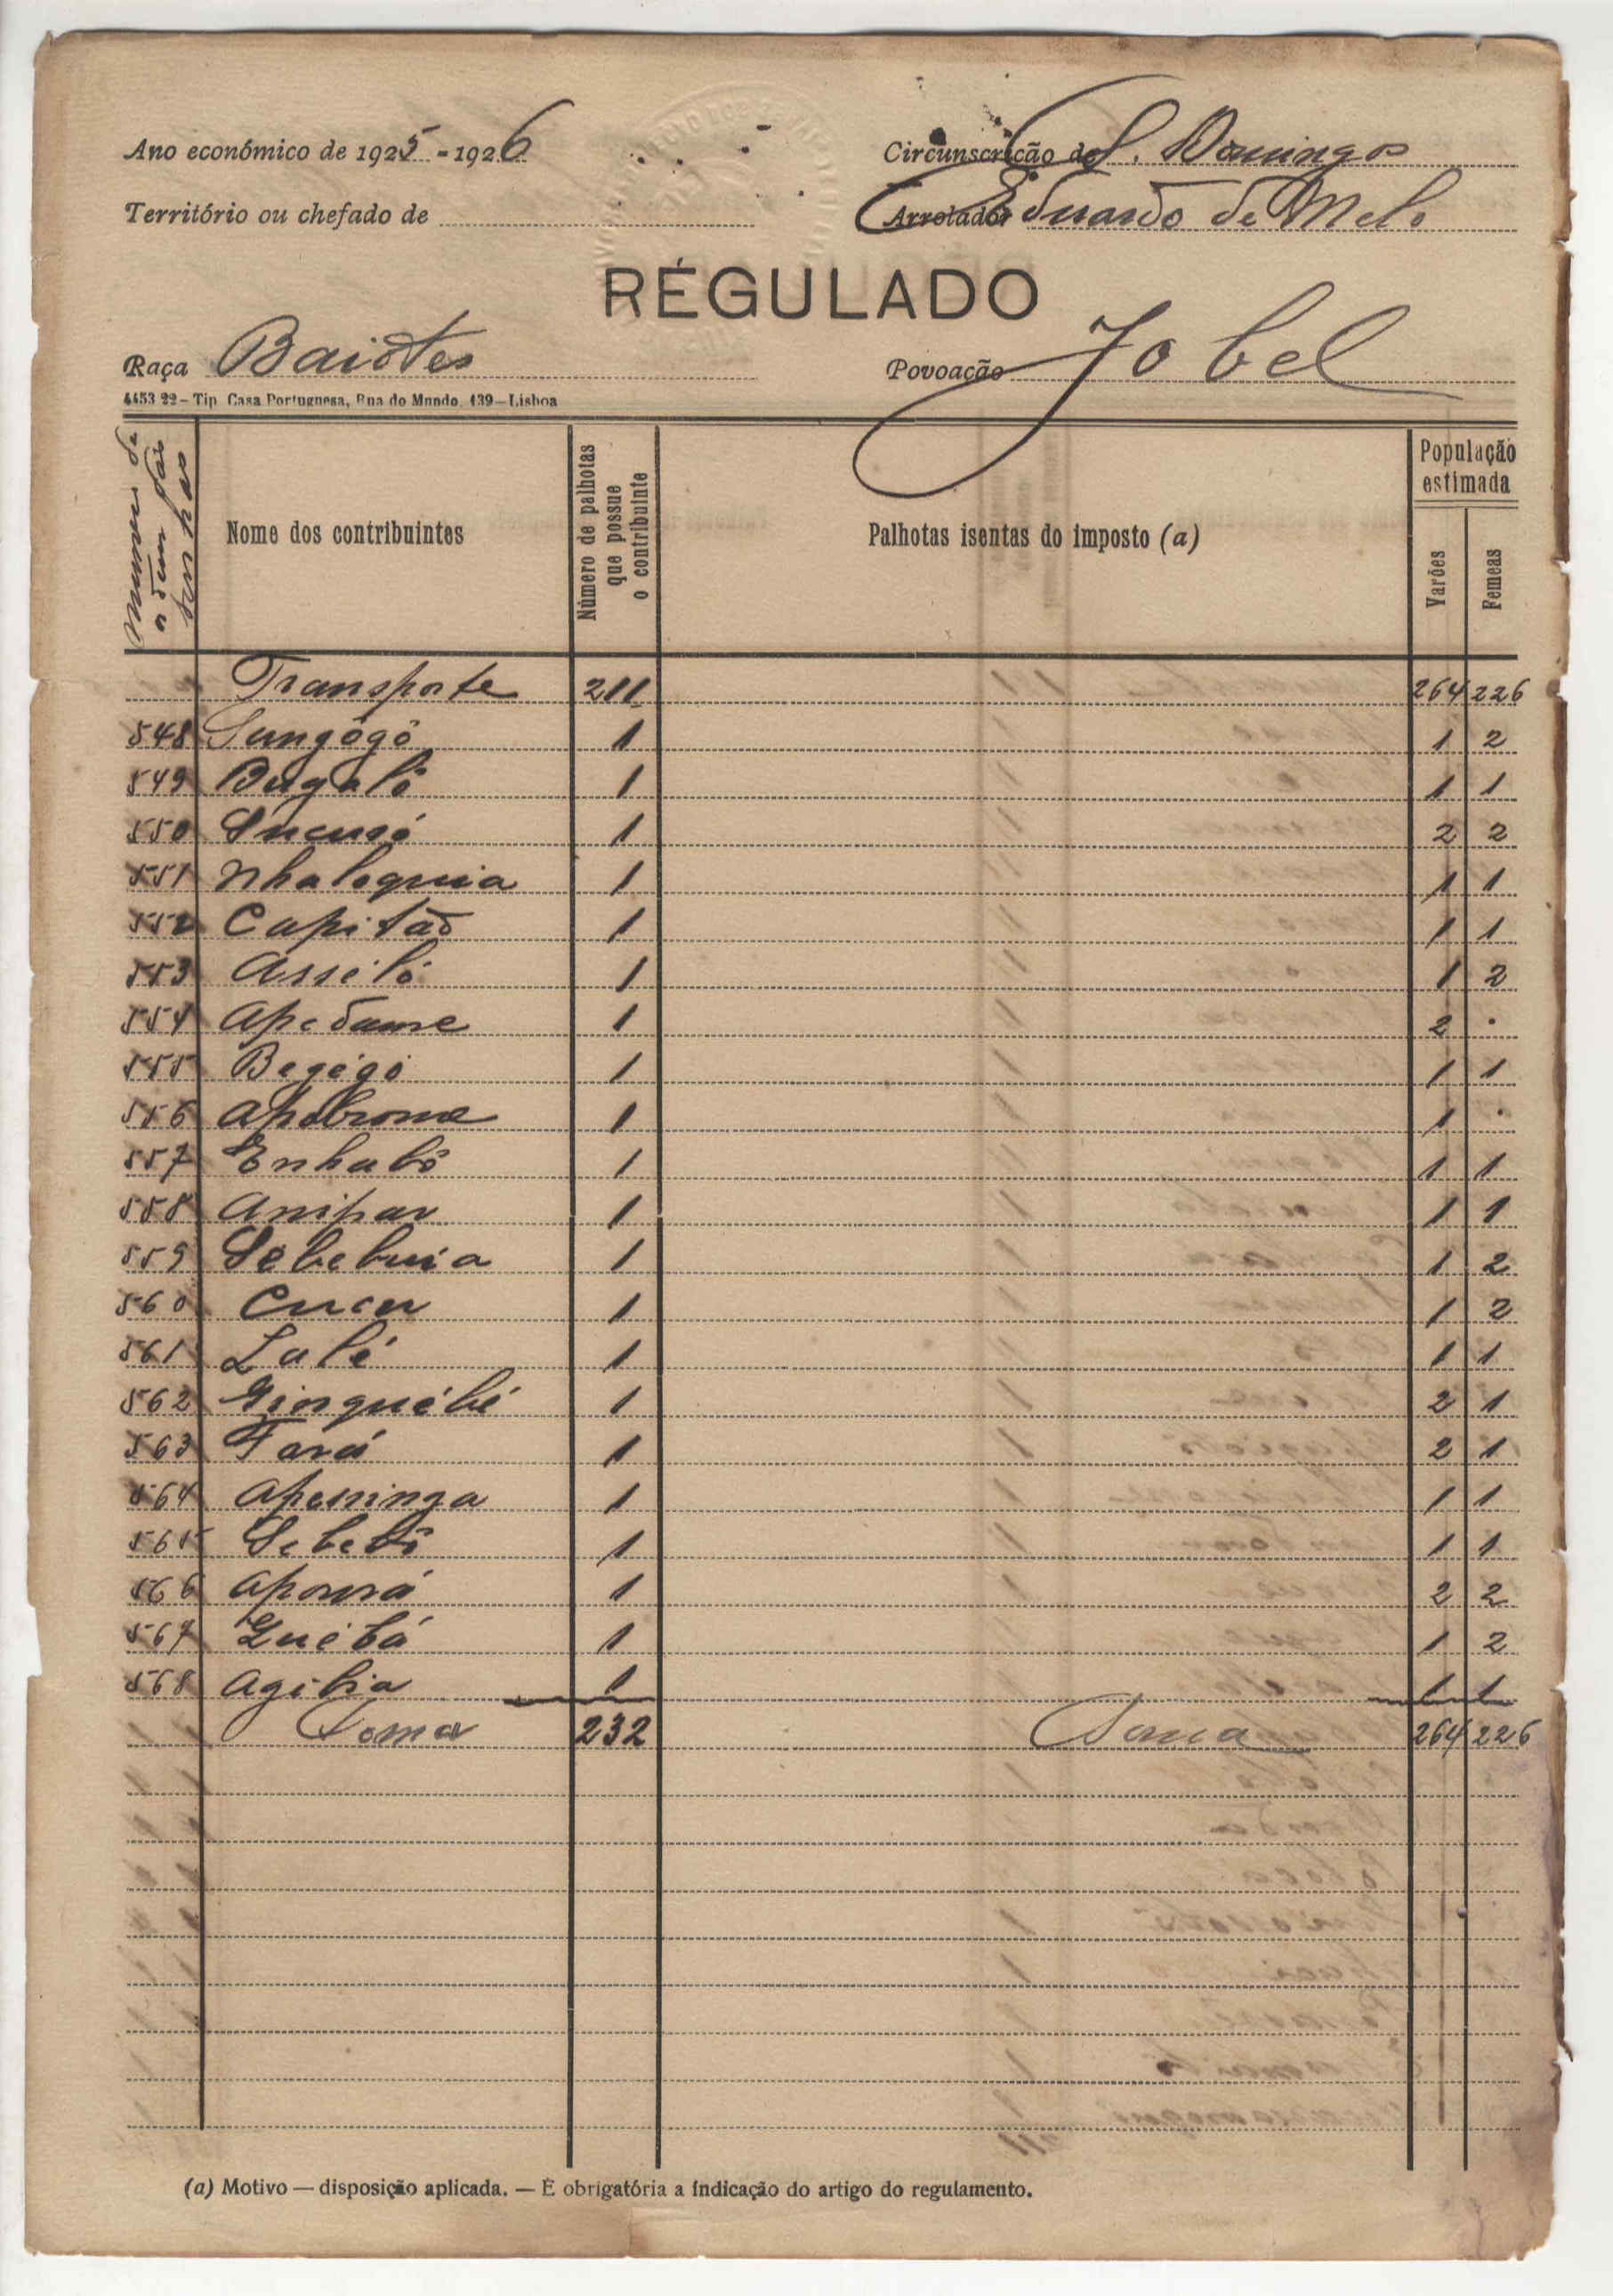 Ano económico de 1925-1926
Circunscrição de S. Domingos
Território ou chefado de
Arrolador Eduardo de Melo
RÉGULADO
Raça Baiotes
Povoação Jobel
4453 22 — Tip. Casa Portuguesa, Rua do Mundo, 139 — Lisboa
Numero de
Nome dos contribuintes
Número de palhotas que possue o contribuinte
Palhotas isentas do imposto (a)
População estimada
Varões
Femeas
Transporte 211 264 226
548 Sungôgô 1 1 2
549 Bugalô 1 1 1
550 Sucusó 1 2 2
551 Nhalequia 1 1 1
552 Capitão 1 1 1
553 Assilô 1 1 2
554 Apedame 1 2 .
555 Begégó 1 1 1
556 Apabrome 1 1 .
557 Enhabô 1 1 1
558 Anipav 1 1 1
559 Sebebuia 1 1 2
560 Cucu 1 1 2
561 Lalé 1 1 1
562 Ginguébé 1 2 1
563 Fará 1 2 1
564 Apeninga 1 1 1
565 Sebebô 1 1 1
566 1 2 2
567 Guébá 1 1 2
568 Agilia 1 1 1
Soma 232 Soma 264 226
(a) Motivo — disposição aplicada. — É obrigatória a indicação do artigo do regulamento.